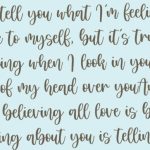 tell you what I'm feelin
e to myself, but it's tru
ing when I look in you
of my head over youAn
believing all love is b
ing about you is tellin